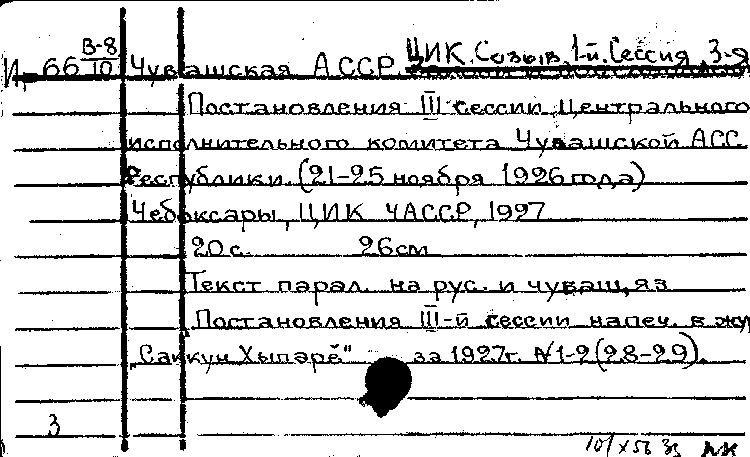 И, 66 В-8/10 Чувашская АССР. ЦИК. Созыв, 1-й. Сессия, 3-я
Постановления III сессии Центрального
исполнительного комитета Чувашской АСС
Республики. (21-25 ноября 1926 года)
Чебоксары, ЦИК ЧАССР, 1927
20 с. 26 см
Текст парал. на рус. и чуваш, яз
Постановления III-й сессии напеч. в жур
"Саккун Хыпарĕ" за 1927г. №1-2 (28-29).
3